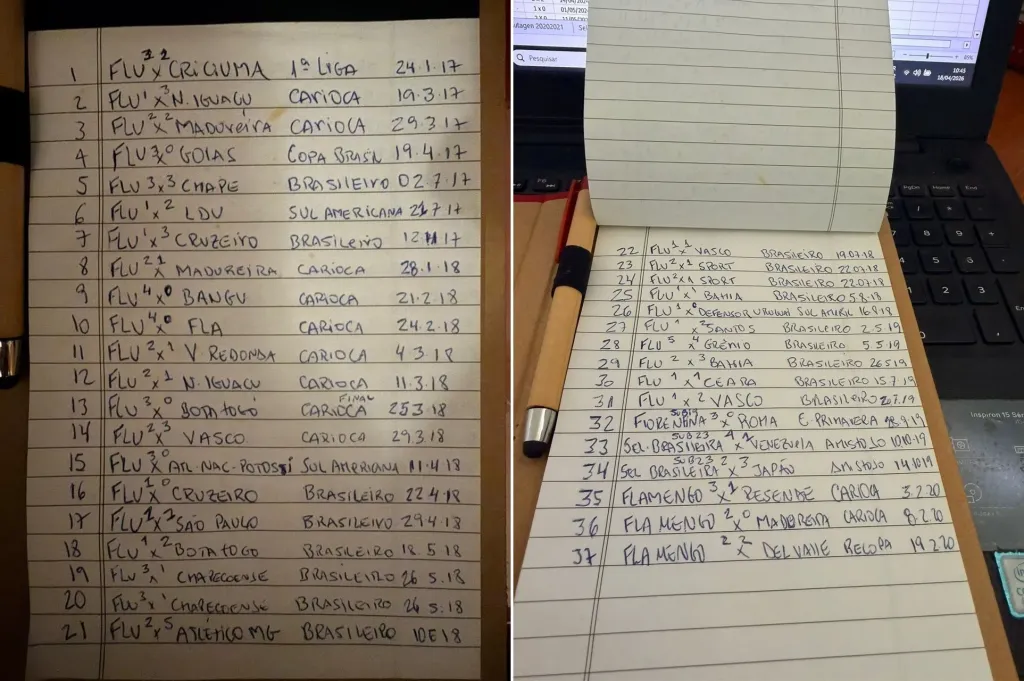 1 FLU 3 x 2 CRICIUMA 1ª LIGA 24.1.17
2 FLU 1 x 3 N. IGUAÇU CARIOCA 19.3.17
3 FLU 2 x 2 MADUREIRA CARIOCA 29.3.17
4 FLU 3 x 0 GOIAS COPA BRASIL 19.4.17
5 FLU 3 x 3 CHAPE BRASILEIRO 02.7.17
6 FLU 1 x 2 LDU SUL AMERICANA 21.7.17
7 FLU 1 x 3 CRUZEIRO BRASILEIRO 12.11.17
8 FLU 2 x 1 MADUREIRA CARIOCA 28.1.18
9 FLU 4 x 0 BANGU CARIOCA 21.2.18
10 FLU 4 x 0 FLA CARIOCA 24.2.18
11 FLU 2 x 1 V. REDONDA CARIOCA 4.3.18
12 FLU 2 x 1 N. IGUAÇU CARIOCA 11.3.18
13 FLU 3 x 0 BOTAFOGO CARIOCA FINAL 25 3.18
14 FLU 2 x 3 VASCO CARIOCA 29.3.18
15 FLU 3 x 0 ATL. NAC-POTOSSÍ SUL AMERICANA 11.4.18
16 FLU 1 x 0 CRUZEIRO BRASILEIRO 22.4.18
17 FLU x SÃO PAULO BRASILEIRO 29.4.18
18 FLU 1 x 2 BOTAFOGO BRASILEIRO 18.5.18
19 FLU 3 x 1 CHAPECOENSE BRASILEIRO 26 5.18
20 FLU 3 x 1 CHAPECOENSE BRASILEIRO 26 5.18
21 FLU 2 x 5 ATLÉTICO MG BRASILEIRO 18
1 x 0 01/05/202
utagen 20202021
Pesquisar
85%
10:43
18/04/2026
PgDn Home End
22 FLU 1 x 1 VASCO BRASILEIRO 19.07.18
23 FLU 2 x 1 SPORT BRASILEIRO 22.07.18
24 FLU 2 x 1 SPORT BRASILEIRO 22.07.18
25 FLU 1 x 1 BAHIA BRASILEIRO 5.8.18
26 FLU x 0 DEFENSOR URUGUAI SUL AMERI. 16.8.18
27 FLU 1 x 2 SANTOS BRASILEIRO 2.5.19
28 FLU 5 x 4 GRÊMIO BRASILEIRO 5.5.19
29 FLU 2 x 3 BAHIA BRASILEIRO 26 5 19
30 FLU 1 x 1 CEARA BRASILEIRO 15.7.19
31 FLU 1 x 2 VASCO BRASILEIRO 20.7.19
32 FIORENTINA SUB19 3 x 0 ROMA E. PRIMAVERA 18.9.19
33 SEL. BRASILEIRA SUB23 x VENEZUELA AMISTOSO 10.10.19
34 SEL BRASILEIRA SUB23 2 x 3 JAPÃO AMISTOSO 14.10.19
35 FLAMENGO 3 x 1 RESENDE CARIOCA 3.2.20
36 FLAMENGO 2 x 0 MADUREIRA CARIOCA 8.2.20
37 FLAMENGO 2 x 2 DEL VALLE RECOPA 19.2.20
Inspiron 15